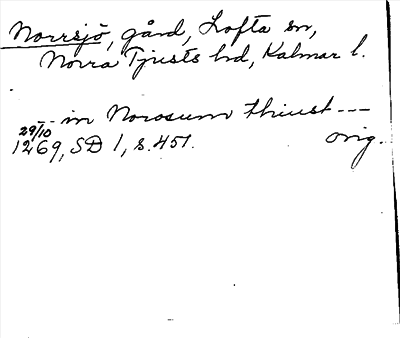 Norrsjö, gård, Lofta sn,
Norra Tjusts hd, Kalmar l.
-- in Norosum thiust ---
29/10
1269, SD 1, s. 451. orig.